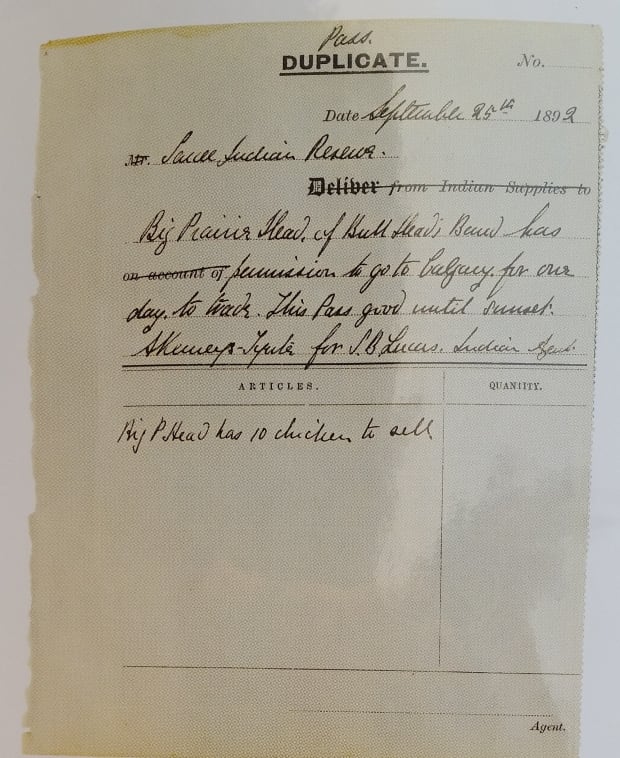 Pass.
DUPLICATE.
No.
Date September 25th 1892
Mr. Sarcee Indian Reserve.
Deliver from Indian Supplies to
Big Prairie Head, of Bull Head's Band has
on account of permission to go to Calgary, for one
day, to trade. This Pass good until sunset.
for S.B Lucas. Indian Agent.
ARTICLES. QUANTITY.
Big P. Head has 10 chicken to sell
Agent.